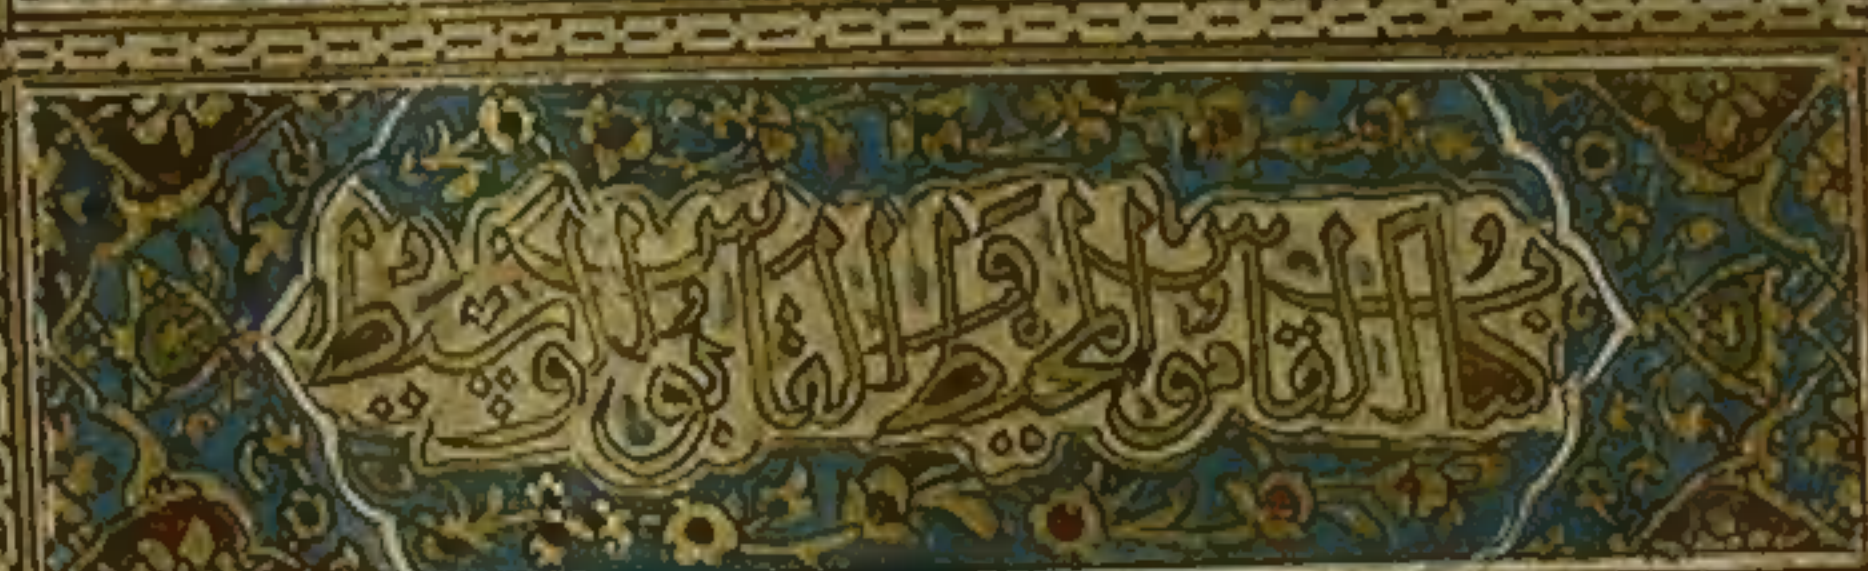 القاموس المحيط والقابوس الوسيط